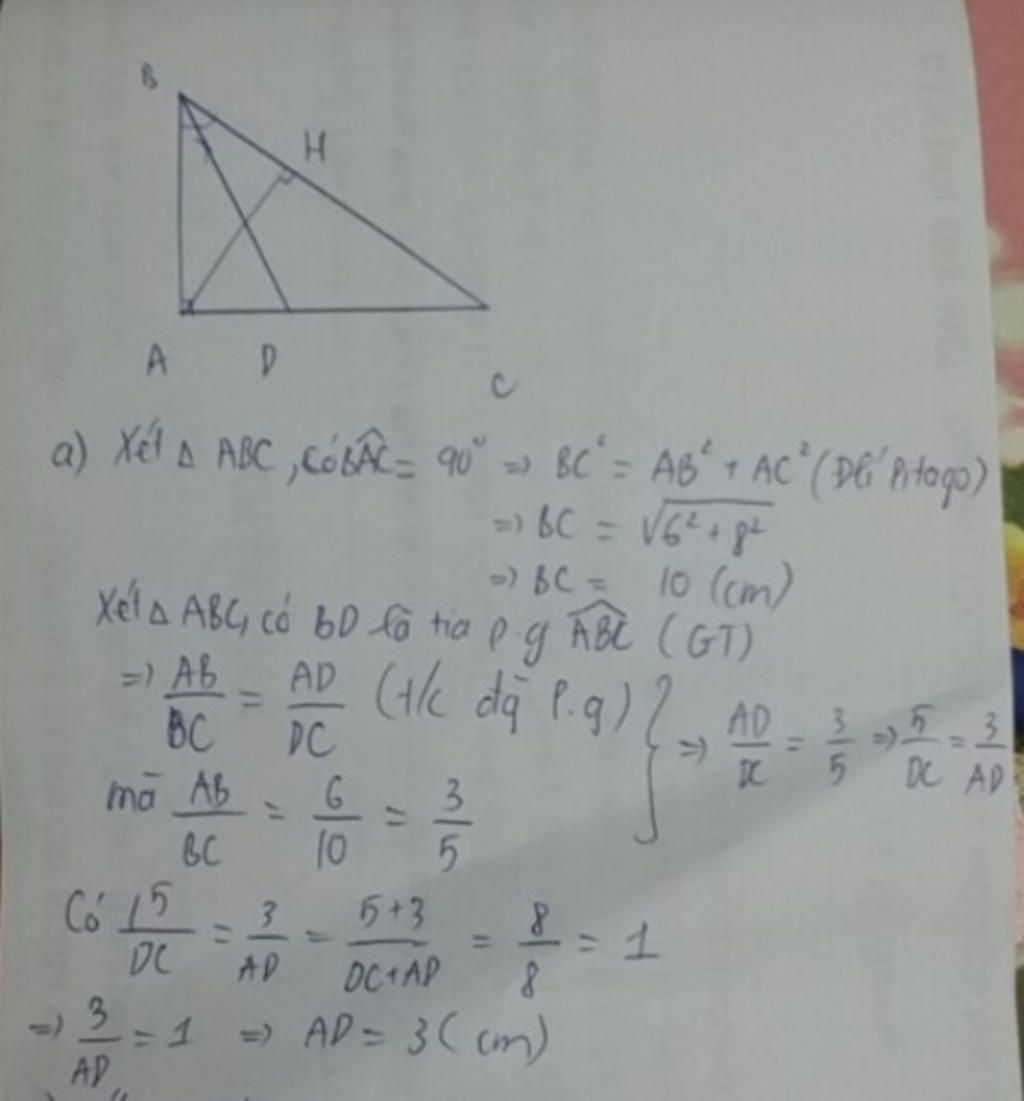 B
H
A D
C
a) Xét Δ ABC, có BÂC = 90° => BC² = AB² + AC² (Đlí Pitago)
=> BC = √6² + 8²
=> BC = 10 (cm)
Xét Δ ABC, có BD là tia p.g ABC (GT)
=> AB/BC = AD/DC (t/c đg p.g) } => AD/DC = 3/5 => 5/DC = 3/AD
mà AB/BC = 6/10 = 3/5
Có 5/DC = 3/AD = 5+3/DC+AD = 8/8 = 1
=> 3/AD = 1 => AD = 3 (cm)